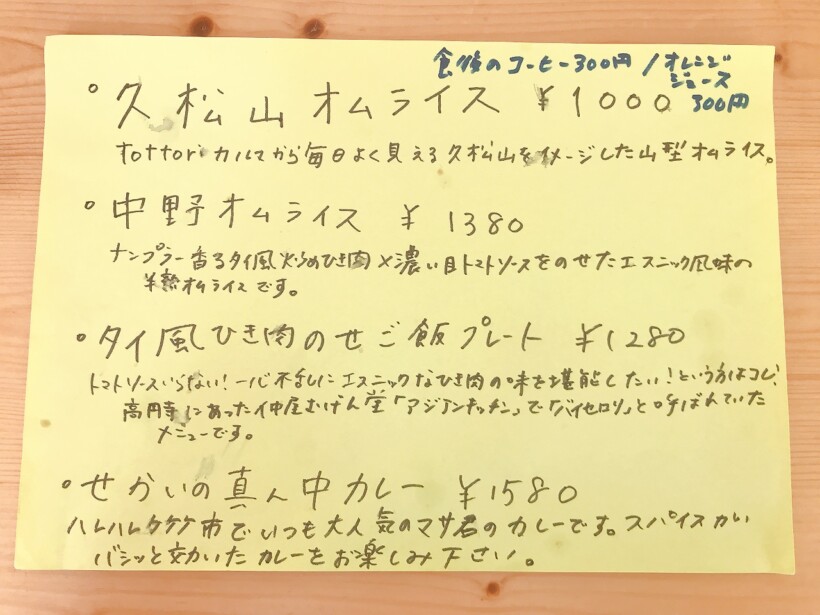 食後のコーヒー300円 / オレンジ
ジュース
300円
・久松山オムライス ¥1000
tottoriカルマから毎日よく見える久松山をイメージした山型オムライス。
・中野オムライス ¥1380
ナンプラー香るタイ風炒めひき肉×濃い目トマトソースをのせたエスニック風味の
半熟オムライスです。
・タイ風ひき肉のせご飯プレート ¥1280
トマトソースいらない!一心不乱にエスニックなひき肉の味を堪能したい!という方はコレ!
高円寺にあった仲屋むげん堂「アジアンキッチン」で「バイセロリ」と呼ばれていた
メニューです。
・せかいの真ん中カレー ¥1580
ハレハレ夕竹市でいつも大人気のマサ君のカレーです。スパイスがい
バシッと効いたカレーをお楽しみ下さい。